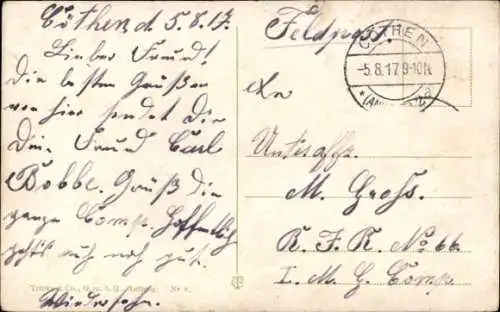 Cöthen d. 5.8.17.
Lieber Freund!
Die besten Grüßen
von hier sendet Dir
Dein Freund Carl
Bobbe. Grüß die
ganze Comp. Hoffentlich
geht's euch noch gut.
Wiedersehn.
Feldpost.
CÖTHEN
-5.8.17.9-10N.
a
An
Unteroffz.
M. Groß.
R. F. R. No 66.
I. M. G. Comp.
Trinks & Co., G. m. b. H., Leipzig.